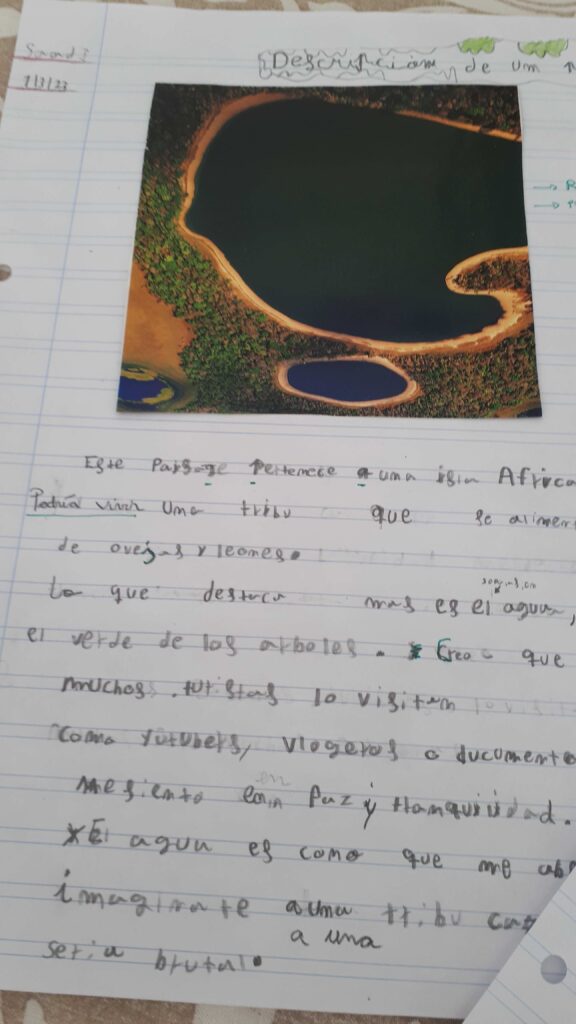 7/3/23
Descripción de un
Este Paisage Pertenece a una isla Africa
Podría vivir una tribu que se aliment
de ovejas y leones.
Lo que destaca mas es el agua,
el verde de los arboles. Creo que
muchos turistas lo visitan
como yutubers, vlogeros o documento
me siento en Paz y tranquilidad.
El agua es como que me ab
imaginate a una tribu
a una
seria brutal.